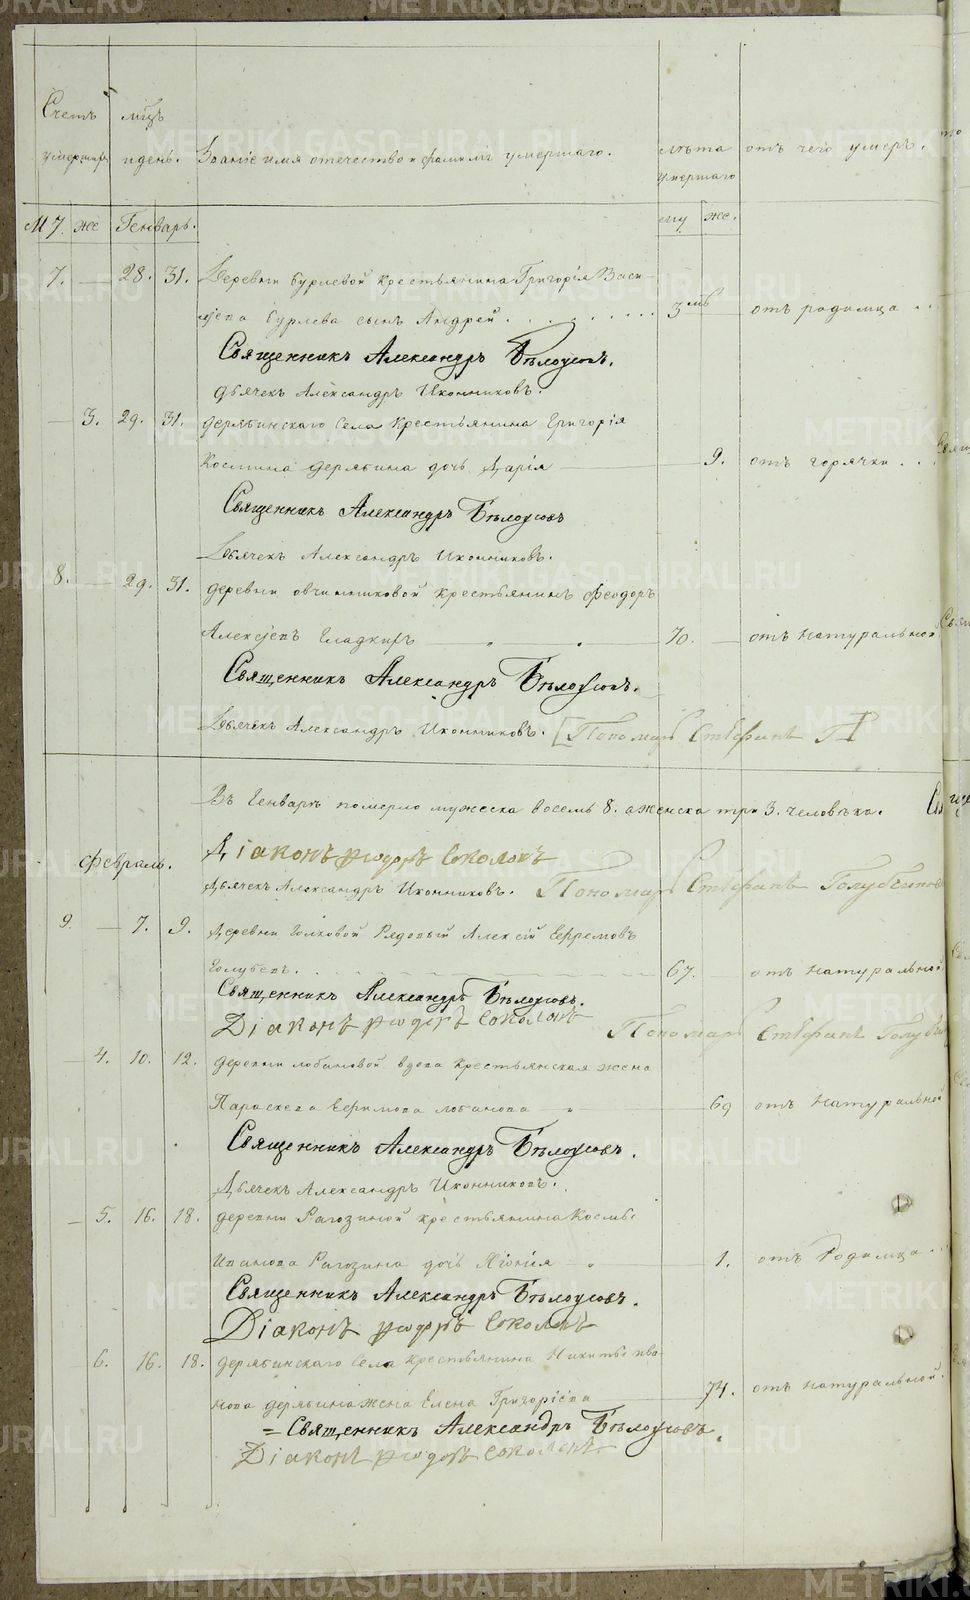 Счетъ умершихъ
мѣцъ и день.
Званіе имя отечество и фамилiя умершаго.
лѣта умершаго
отъ чего умеръ.
М 7. же Генварь. му же.
7. — 28. 31. Деревни Бурлевой крестьянина Григорія Васи-
льева Бурлева сынъ Андрей . . . . . . . . . 3 мѣ отъ родимца . .
Священникъ Александръ Бѣлоусовъ.
Дьячекъ Александръ Иконниковъ.
— 3. 29. 31. Дерябинскаго Села Крестьянина Григорія
Космина Дерябина дочь Дарія 9. отъ горячки . . .
Священникъ Александръ Бѣлоусовъ
Дьячекъ Александръ Иконниковъ.
8. — 29. 31. деревни овчинниковой крестьянинъ Феодоръ
Алексѣевъ Гладкихъ 70. — отъ натуральной
Священникъ Александръ Бѣлоусовъ.
Дьячекъ Александръ Иконниковъ. Пономарь Стефанъ Г
Въ Генварѣ померло мужеска восемь 8. а женска три 3. человѣка.
Діаконъ Ѳеодоръ Соколовъ
Февраль.
Дьячекъ Александръ Иконниковъ. Пономарь Стефанъ Голубчиковъ
9. — 7. 9. Деревни Голковой Рядовый Алексій Ефремовъ
Голубевъ. 67. отъ натуральной
Священникъ Александръ Бѣлоусовъ.
Діаконъ Ѳеодоръ Соколовъ Пономарь Стефанъ Голубч
— 4. 10. 12. деревни лобановой вдова крестьянская жена
Параскева Ефимова лобанова 69 отъ натуральной
Священникъ Александръ Бѣлоусовъ.
Дьячекъ Александръ Иконниковъ.
— 5. 16. 18. деревни Рагозиной крестьянина Космы
Иванова Рагозина дочь 1. отъ Родимца . .
Священникъ Александръ Бѣлоусовъ.
Діаконъ Ѳеодоръ Соколовъ
— 6. 16. 18. Дерябинскаго Села Крестьянина Никиты ива-
нова дерябина жена Елена Григоріева 74. отъ натуральной.
= Священникъ Александръ Бѣлоусовъ.
Діаконъ Ѳеодоръ Соколовъ
METRIKI.GASO-URAL.RU